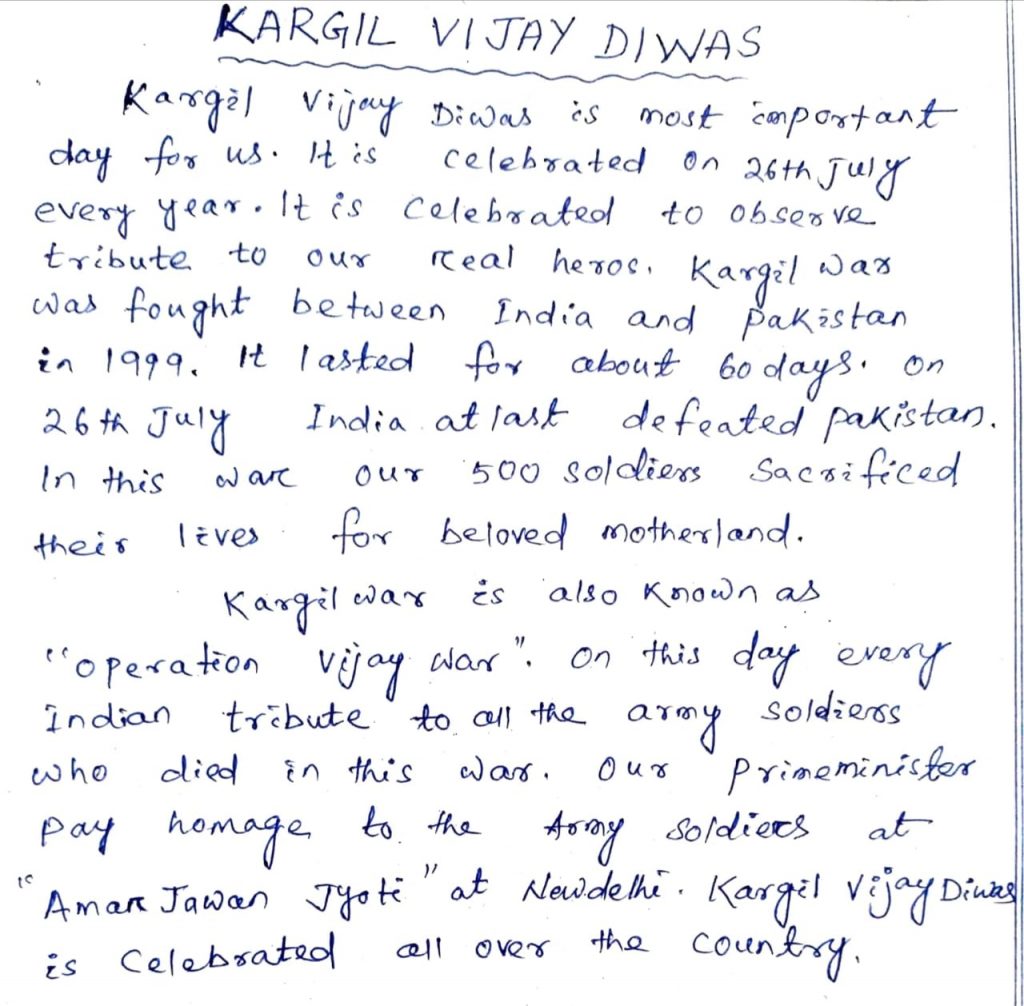 KARGIL VIJAY DIWAS
Kargil Vijay Diwas is most important
day for us. It is celebrated on 26th July
every year. It is celebrated to observe
tribute to our real heros. Kargil war
was fought between India and pakistan
in 1999. It lasted for about 60 days. on
26th July India at last defeated pakistan.
In this war our 500 soldiers sacrificed
their lives for beloved motherland.
Kargil war is also known as
"operation vijay war". on this day every
Indian tribute to all the army soldiers
who died in this war. Our primeminister
pay homage to the Army soldiers at
"Amar Jawan Jyoti" at Newdelhi. Kargil Vijay Diwas
is celebrated all over the country.